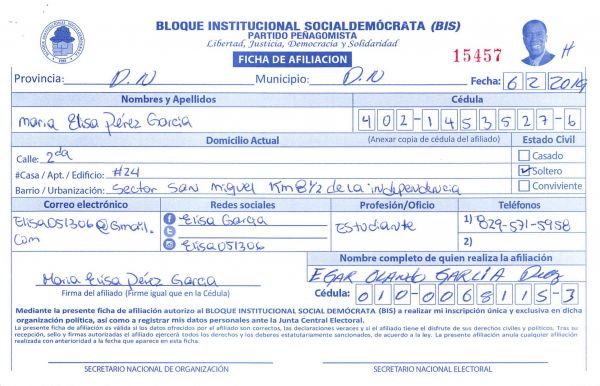 BLOQUE INSTITUCIONAL SOCIALDEMÓCRATA (BIS)
PARTIDO PEÑAGOMISTA
Libertad, Justicia, Democracia y Solidaridad
FICHA DE AFILIACION
15457
Provincia: D.N Municipio: D.N Fecha: 6 2 2019
Nombres y Apellidos Cédula
Maria Elisa Pérez Garcia 402-1453527-6
Domicilio Actual (Anexar copia de cédula del afiliado) Estado Civil
Calle: 2da
Casado
#Casa / Apt. / Edificio: #24
Soltero
Barrio / Urbanización: Sector San Miguel Km 8 1/2 de la independencia
Conviviente
Correo electrónico Redes sociales Profesión/Oficio Teléfonos
Elisa051306@Gmail.com
Elisa Garcia
Elisa051306
Estudiante
1) 829-571-5958
2)
Nombre completo de quien realiza la afiliación
EGAR OLANDO GARCIA
Maria Elisa Pérez Garcia
Firma del afiliado (Firme igual que en la Cédula)
Cédula: 010-0068115-3
Mediante la presente ficha de afiliación autorizo al BLOQUE INSTITUCIONAL SOCIAL DEMÓCRATA (BIS) a realizar mi inscripción única y exclusiva en dicha
organización política, así como a registrar mis datos personales ante la Junta Central Electoral.
La presente ficha de afiliación es válida si los datos ofrecidos por el afiliado son correctos, las declaraciones veraces y si el afiliado tiene el disfrute de sus derechos civiles y políticos. Tras su
recepción, sello y firmas autorizadas el afiliado ejercerá todos los derechos y los deberes estatutariamente sancionados, de acuerdo a la ley. La presente afiliación anula cualquier afiliación
realizada con anterioridad a la fecha que aparece en esta ficha.
SECRETARIO NACIONAL DE ORGANIZACIÓN SECRETARIO NACIONAL ELECTORAL